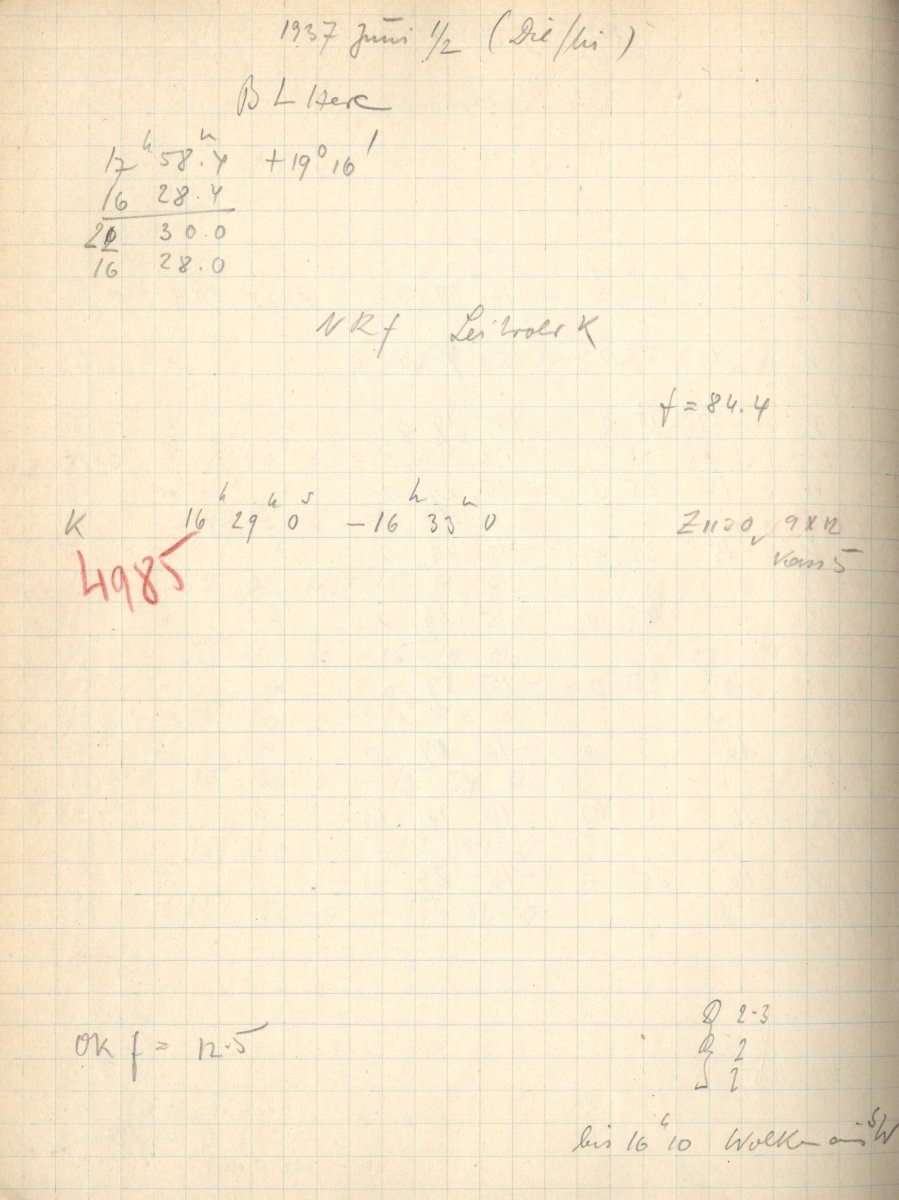 1937 Juni 1/2 (Die/Mi)
BL Herc
17h 58m.4 +19° 16'
16 28.4
30.0
16 28.0
NRf Leitrohr K
f = 84.4
K 16h 29m 0s - 16h 33m 0 9x12
4985
OK f = 12.5
2-3
2
2
bis 16h 10 Wolken aus SW